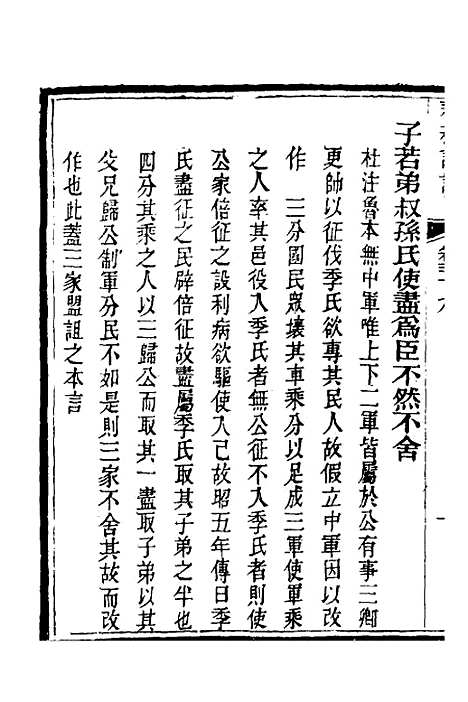 子若弟叔孫氏使盡爲臣不然不舍
杜注魯本無中軍唯上下二軍皆屬於公有事三卿
更帥以征伐季氏欲專其民人故假立中軍因以改
作　三分國民眾壞其車乘分以足成三軍使軍乘
之人率其邑役入季氏者無公征不入季氏者則使
公家倍征之設利病欲驅使入己故昭五年傳曰季
氏盡征之民辟倍征故盡屬季氏取其子弟之半也
四分其乘之人以三歸公而取其一盡取子弟以其
父兄歸公制軍分民不如是則三家不舍其故而改
作也此蓋三家盟詛之本言